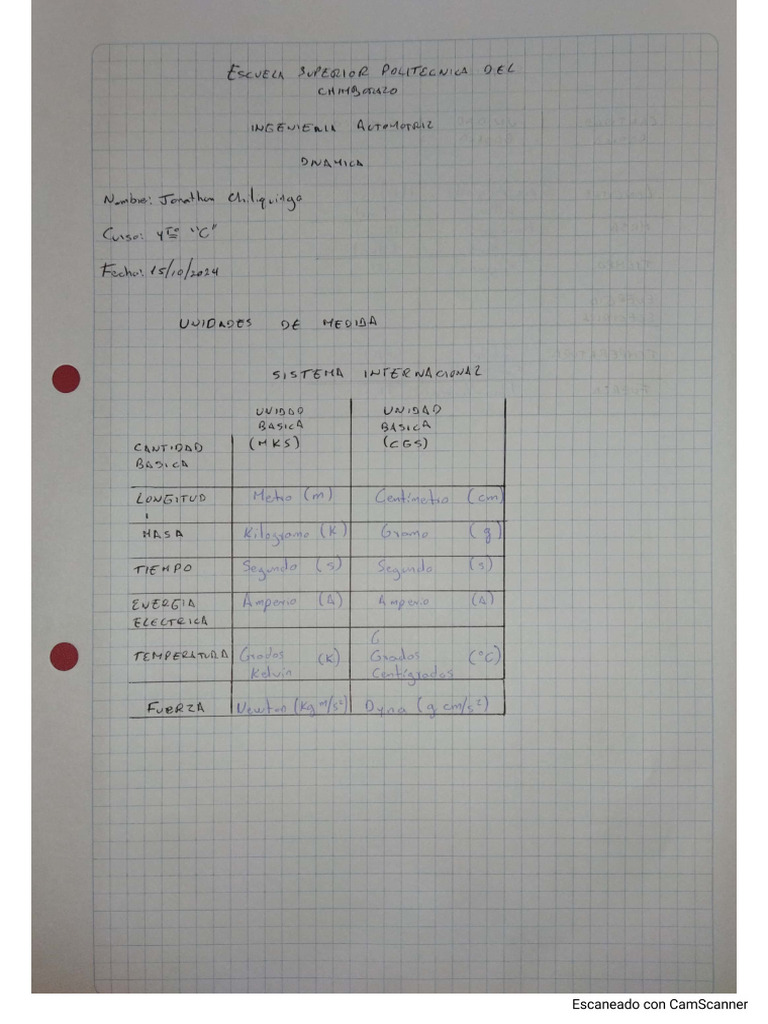 ESCUELA SUPERIOR POLITECNICA DEL
CHIMBORAZO
INGENIERIA AUTOMOTRIZ
DINAMICA
Nombre: Jonathan Chiliquinga
Curso: 4to "C"
Fecha: 15/10/2024
UNIDADES DE MEDIDA
SISTEMA INTERNACIONAL
CANTIDAD BASICA | UNIDAD BASICA (MKS) | UNIDAD BASICA (CGS)
LONGITUD | Metro (m) | Centímetro (cm)
MASA | Kilogramo (K) | Gramo (g)
TIEMPO | Segundo (s) | Segundo (s)
ENERGIA ELECTRICA | Amperio (A) | Amperio (A)
TEMPERATURA | Grados Kelvin (K) | Grados Centígrados (°C)
FUERZA | Newton (Kg m/s²) | Dyna (g cm/s²)
Escaneado con CamScanner